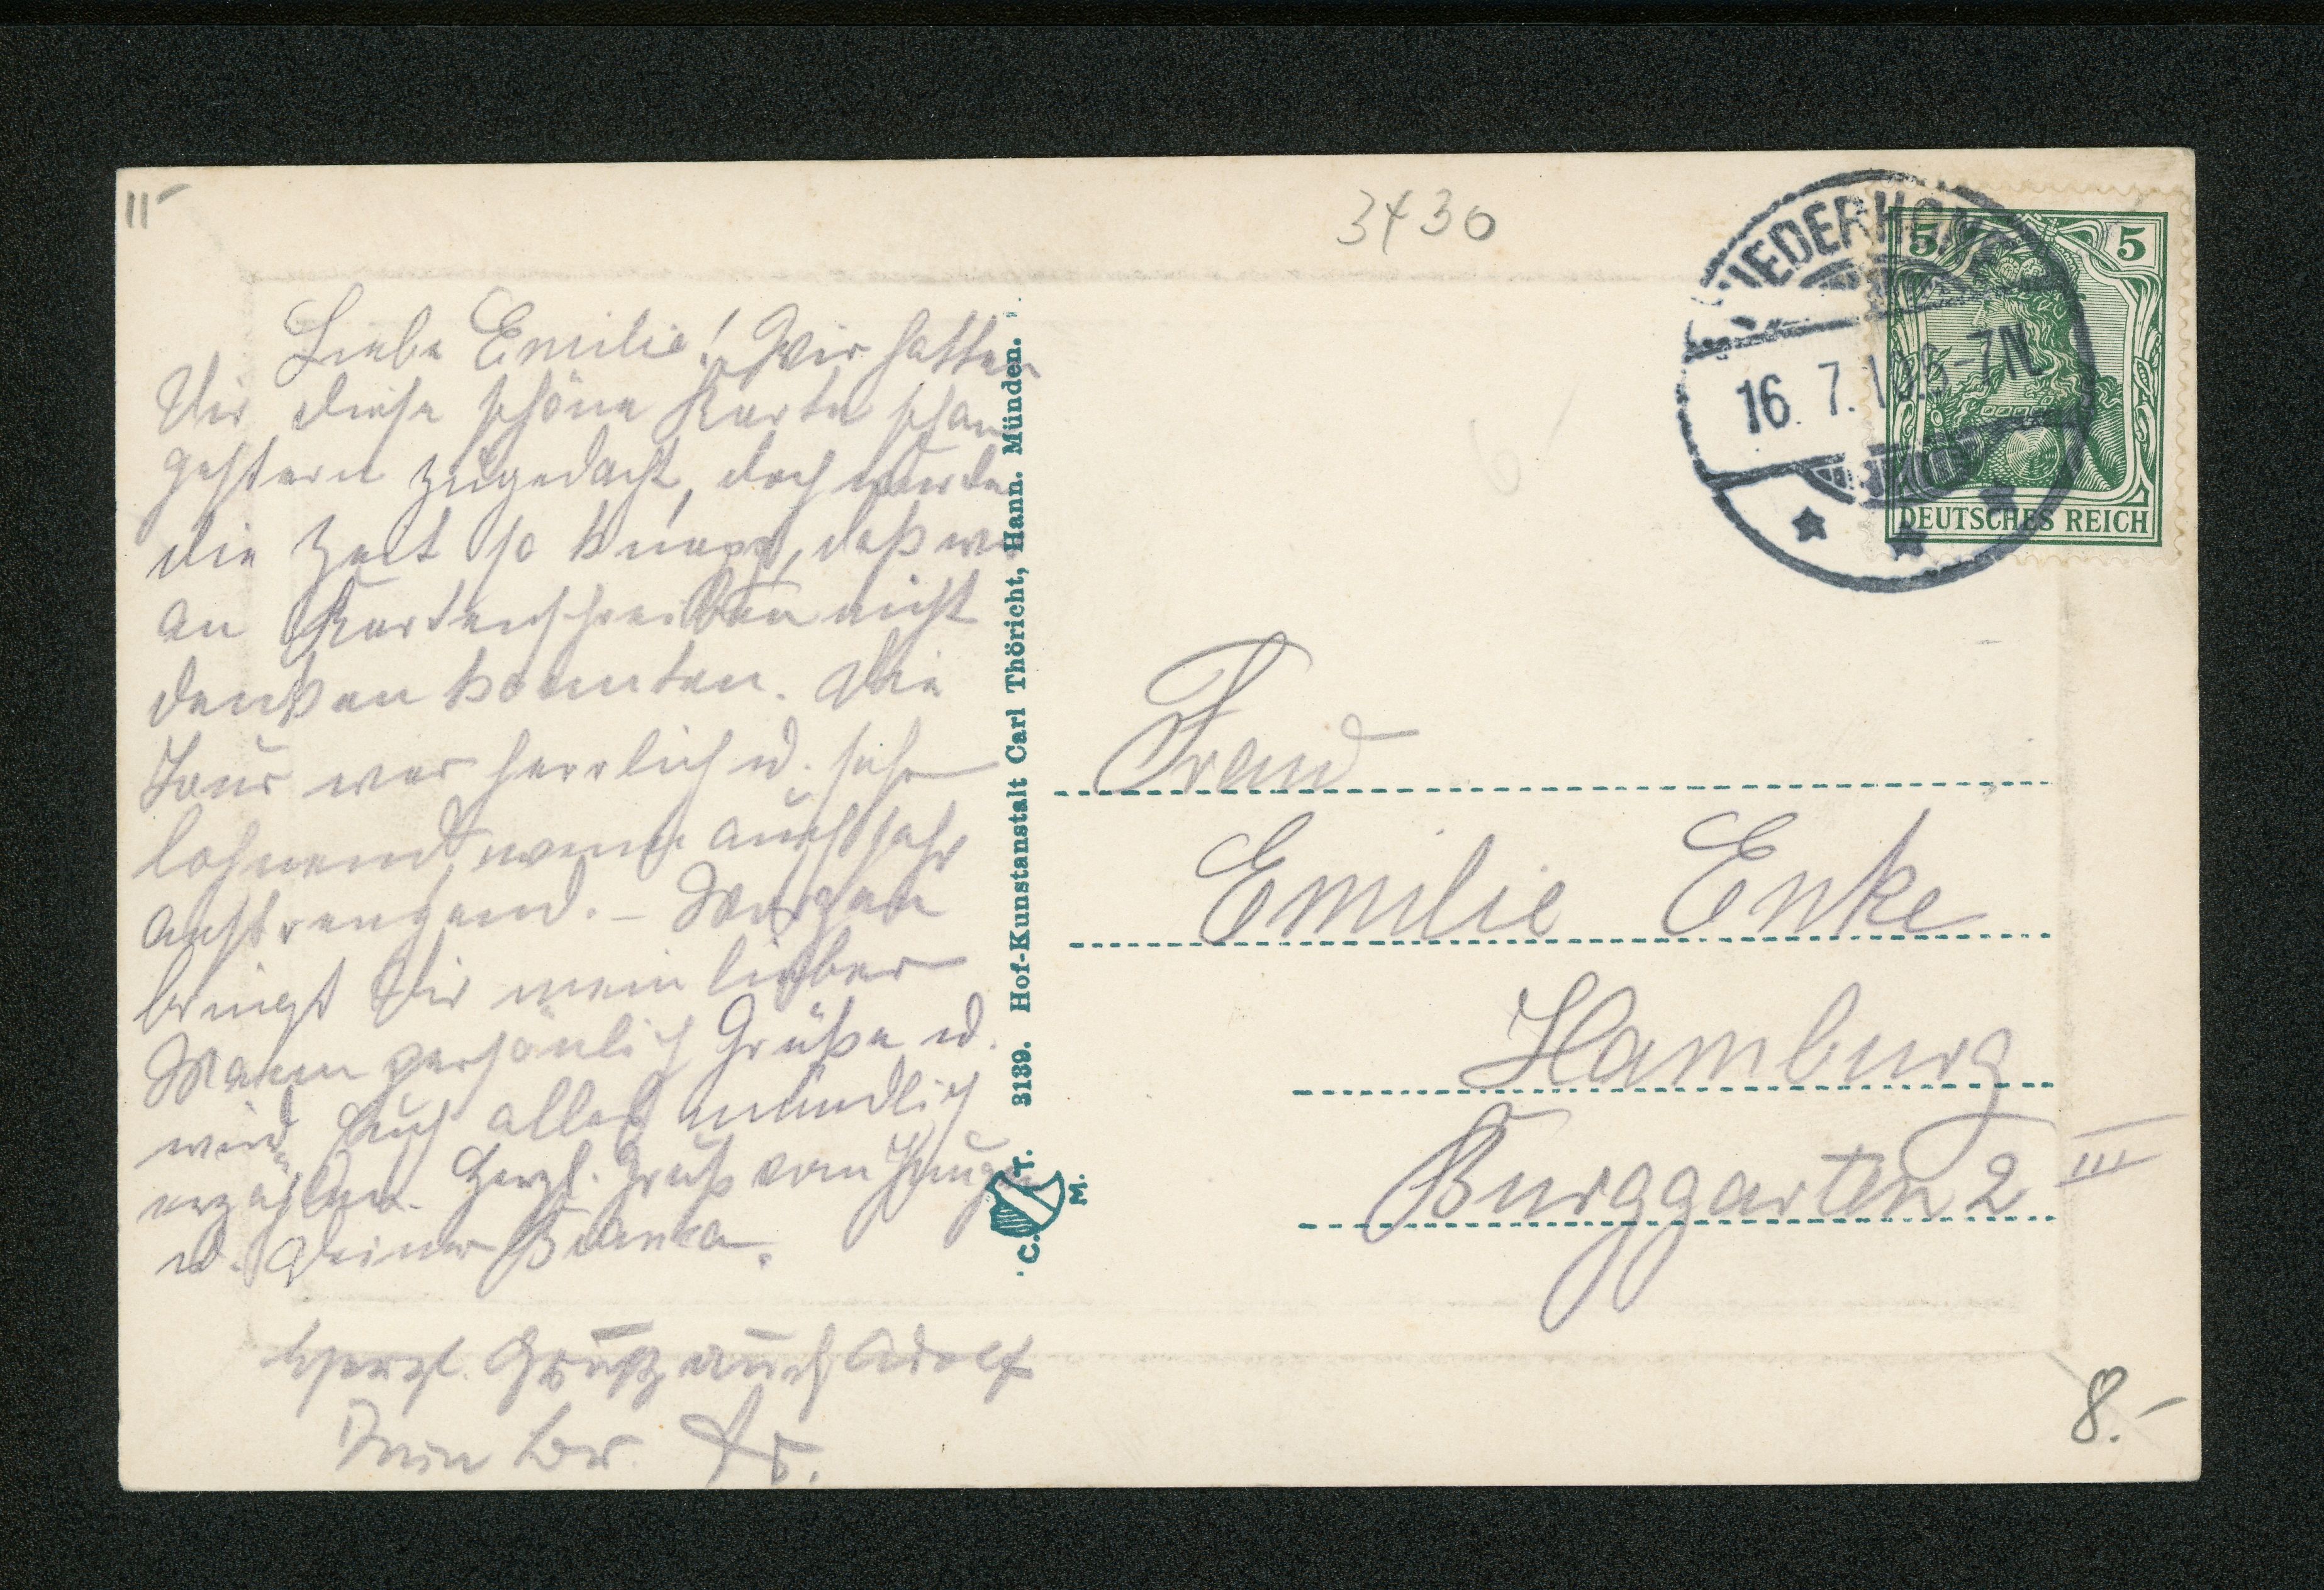 11-
3430
NIEDERHON
16. 7. 10. 6-7N
5 5
DEUTSCHES REICH
Liebe Emilie! Wir hatten
Dir diese schöne Karte schon
gestern zugedacht, doch wurde
die Zeit so knapp, daß wir
an Kartenschreiben nicht
denken konnten. Die
Tour war herrlich u. sehr
lohnend, wenn auch sehr
anstrengend. – Morgen
bringt Dir mein lieber
Mann persönlich Grüße u.
wird Euch alles mündlich
erzählen. Herzl. Gruß vom Jungen
u. Deiner Bianka.
Herzl. Gruß auch Adolf
Dein Br.
C. T. M.
3139. Hof-Kunstanstalt Carl Thöricht, Hann. Münden.
Frau
Emilie Enke
Hamburg
Burggarten 2 III
8.-